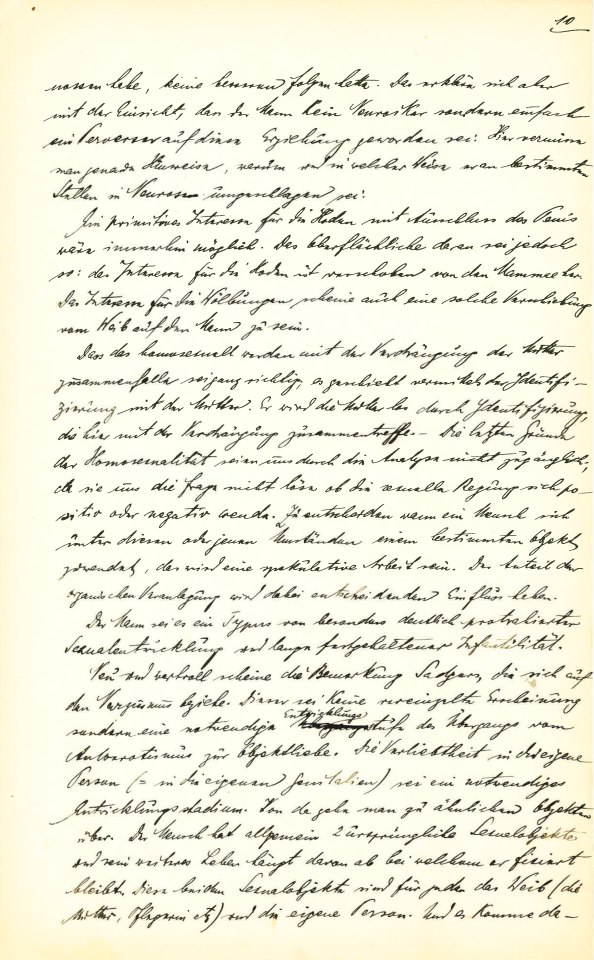 10
nossen habe, keine besseren Folgen hatte. Das erkläre sich aber
mit der Einsicht, dass der Mann kein Neurotiker sondern einfach
ein Perverser auf diese Erziehung geworden sei. Hier vermisse
man jene Hinweise, warum und in welcher Weise er an bestimmten
Stellen in Neurose umgeschlagen sei.
Ein primitives Interesse für die Hoden mit Ausschluss des Penis
wäre immerhin möglich. Das Oberflächliche daran sei jedoch
so: das Interesse für die Hoden ist verschoben von den Mammae her.
Das Interesse für die Wölbungen, scheine auch eine solche Verschiebung
vom Weib auf den Mann zu sein.
Dass das homosexuell werden mit der Verdrängung der Mutter
zusammenfalle sei ganz richtig, es geschieht vermittels der Identifi-
zierung mit der Mutter. Er wird die Mutter los durch Identifizierung,
die hier mit der Verdrängung zusammentreffe. – Die letzten Gründe
der Homosexualität seien uns durch die Analyse nicht zugänglich,
da sie uns die Frage nicht löse ob die sexuelle Regung sich po-
sitiv oder negativ wende. Zu entscheiden wann ein Mensch sich
unter diesen oder jenen Umständen einem bestimmten Objekt
zuwendet, das wird eine spekulative Arbeit sein. Der Anteil der
organischen Veranlagung wird dabei entscheidenden Einfluss haben.
Der Mann sei es ein Typus von besonders deutlich protrahierter
Sexualentwicklung und lange festgehaltener Infantilität.
Neu und wertvoll scheine die Bemerkung Sadgers, die sich auf
den Narzissmus beziehe. Dieser sei keine vereinzelte Erscheinung
sondern eine notwendige Entwicklungsstufe des Übergangs vom
Autoerotismus zur Objektliebe. Die Verliebtheit in die eigene
Person (= in die eigenen Genitalien) sei ein notwendiges
Entwicklungsstadium. Von da gehe man zu ähnlichen Objekten
über. Der Mensch hat allgemein 2 ursprüngliche Sexualobjekte
und sein weiteres Leben hängt davon ab bei welchem er fixiert
bleibt. Diese beiden Sexualobjekte sind für jeden das Weib (die
Mutter, Pflegerin etz) und die eigene Person. Und es komme da-